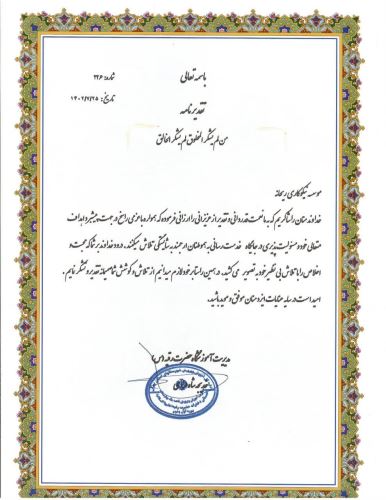 باسمه تعالی
شماره: ۲۲۶
تاریخ: ۱۴۰۲/۲/۲۵
تقدیرنامه
من لم یشکر المخلوق لم یشکر الخالق
موسسه نیکوکاری ریحانه
خداوند منان را شاکریم که به ما نعمت قدردانی و تقدیر از عزیزانی را ارزانی فرموده که همواره با عزمی راسخ در جهت پیشبرد اهداف
متعالی خود و مسئولیت پذیری در جایگاه خدمت رسانی به هموطنان ارجمند به شایستگی تلاش میکنند. درود خداوند بر شما که محبت و
اخلاص را با تلاش بی نظیر خود به تصویر می کشید. در همین راستا بر خود لازم میدانیم از تلاش و کوشش شما صمیمانه تقدیر و تشکر نمایم.
امید است در سایه عنایات ایزد منان موفق و موید باشید.
مدیریت آموزشگاه حضرت رقیه (س)